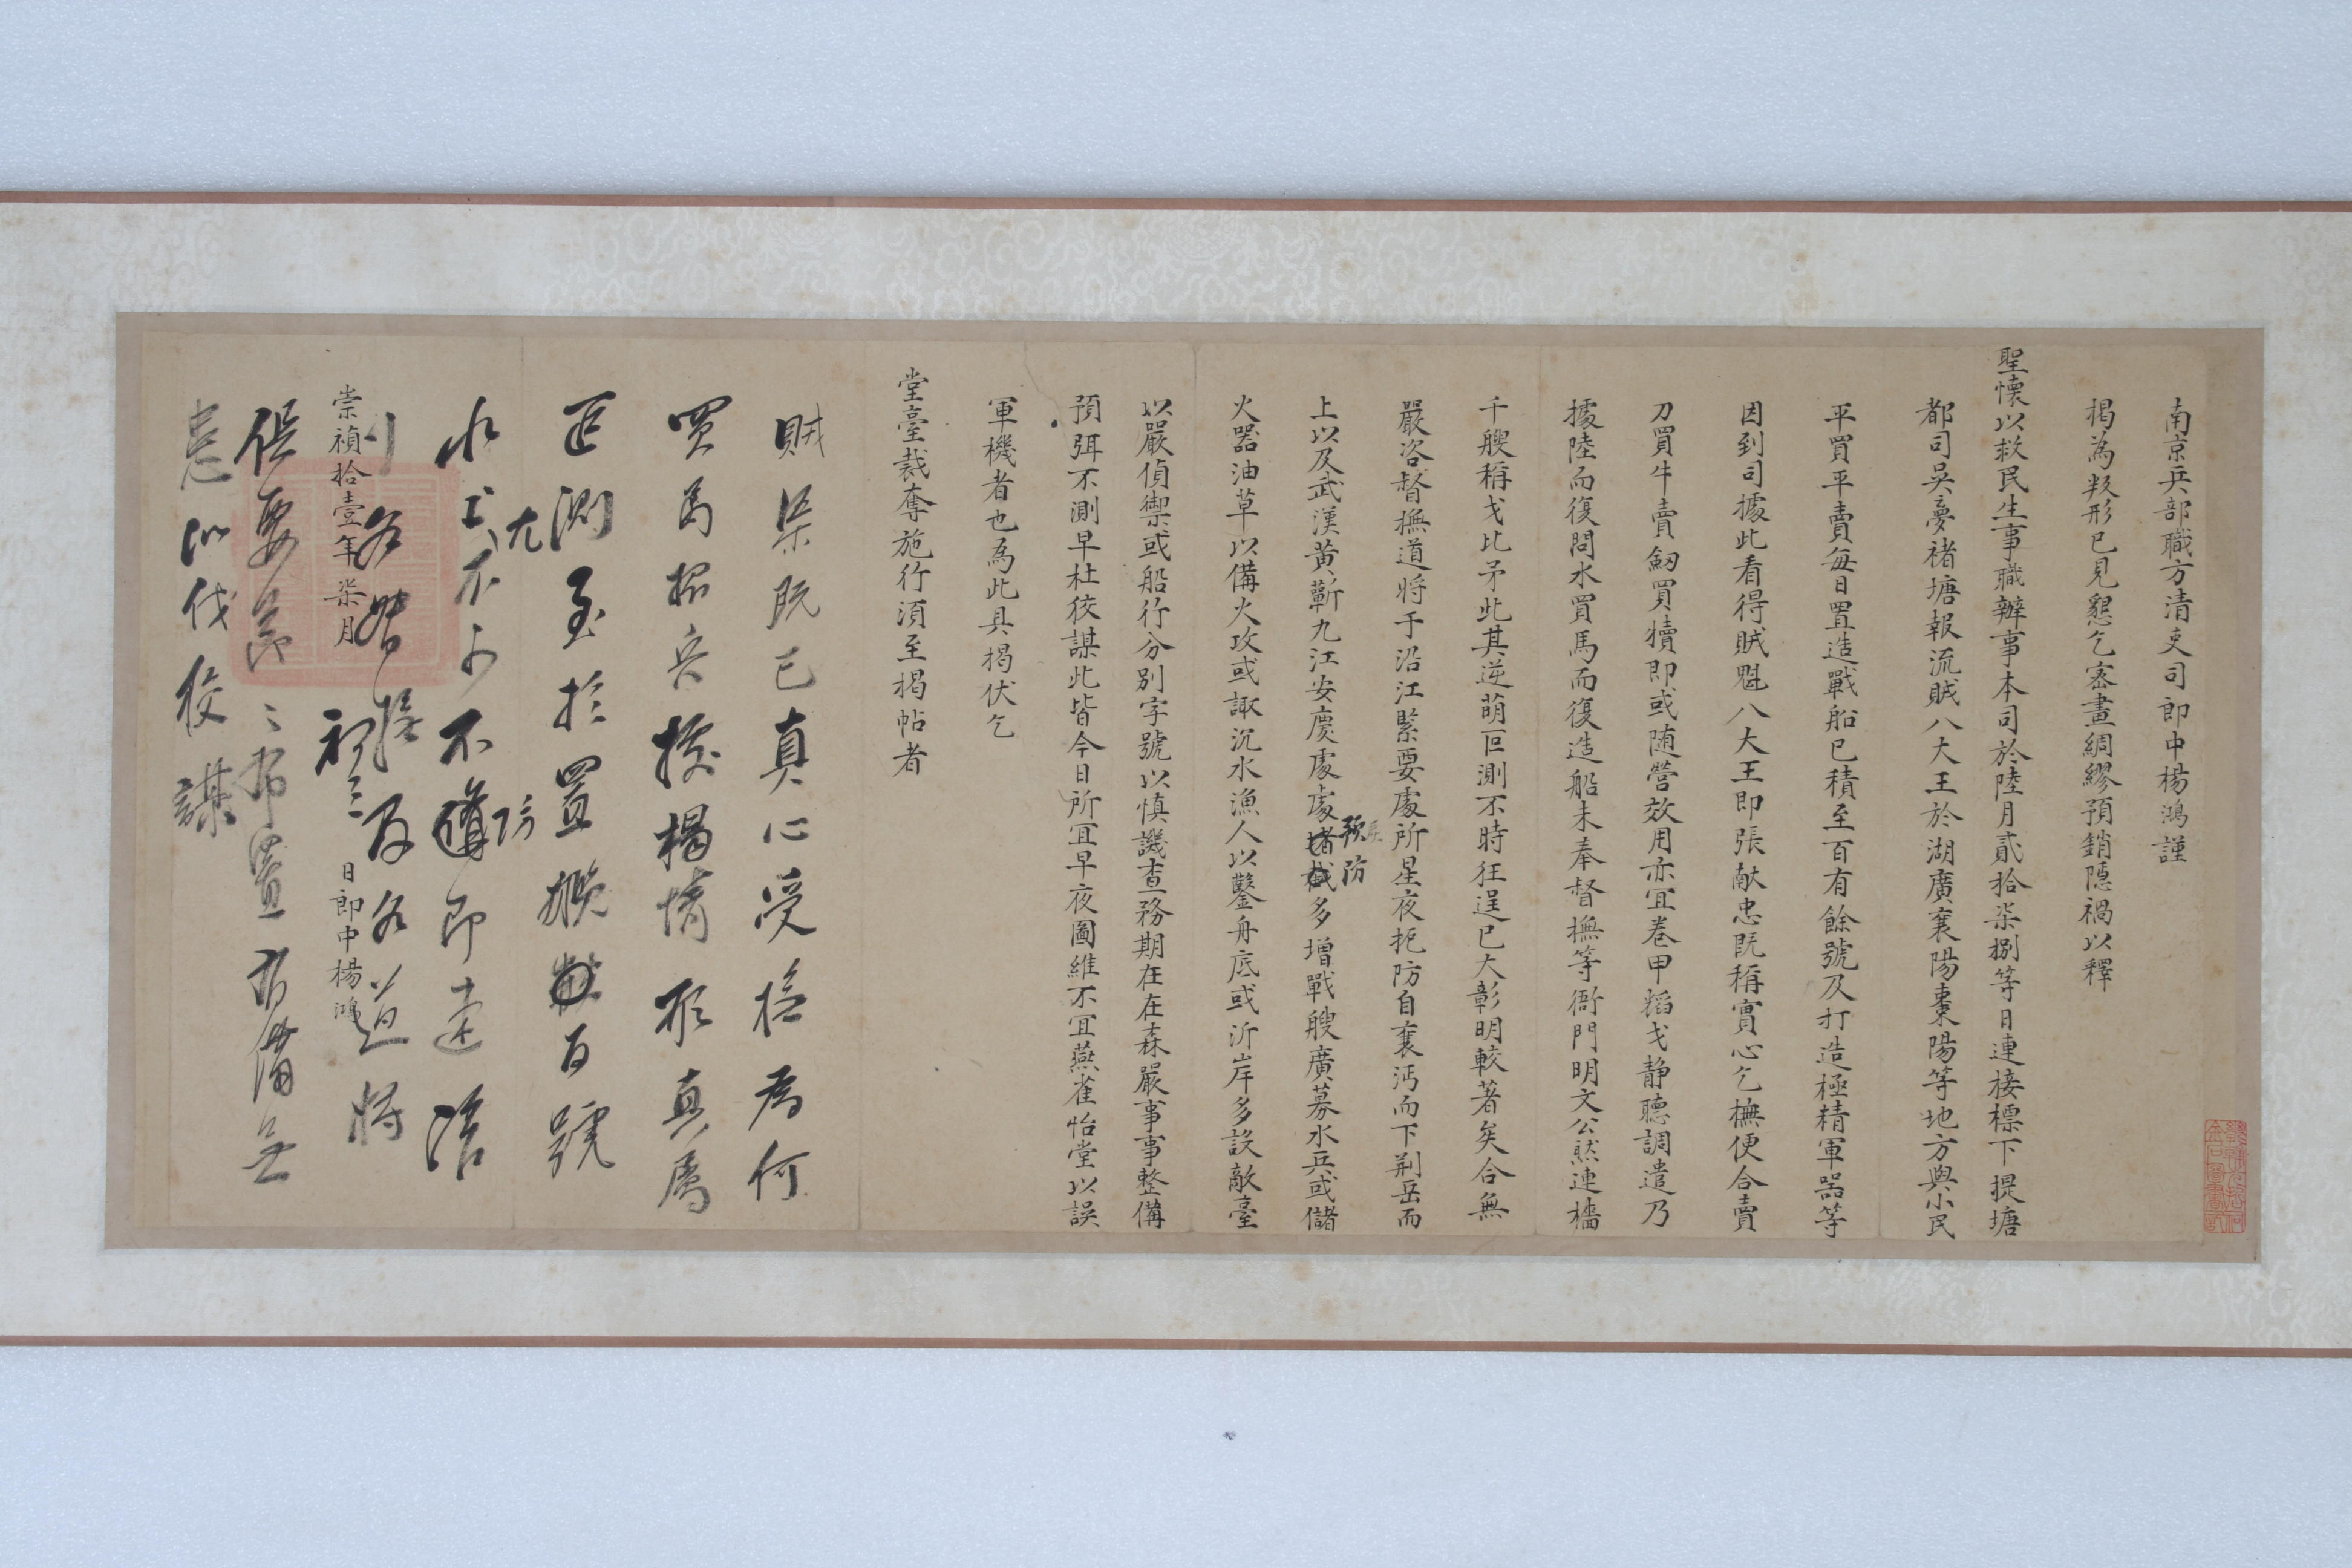 南京兵部職方清吏司郎中楊鴻謹
揭為叛形已見懇乞密畫綢繆預銷隱禍以釋
聖懷以救民生事職辦事本司於陸月貳拾柒捌等日連接標下提塘
都司吳夢禇塘報流賊八大王於湖廣襄陽棗陽等地方與小民
平買平賣每日置造戰船已積至百有餘號及打造極精軍器等
因到司據此看得賊魁八大王即張献忠既稱實心乞撫便合賣
刀買牛賣劒買犢即或随營效用亦宜卷甲韜戈静聽調遣乃
據陸而復問水買馬而復造船未奉督撫等衙門明文公然連檣
千艘稱戈比矛此其逆萌叵測不時狂逞已大彰明較著矣合無
嚴咨督撫道将于沿江緊要處所星夜扼防自襄沔而下荆岳而
預防
上以及武漢黄蘄九江安慶處處多增戰艘廣募水兵或儲
火器油草以備火攻或諏沉水漁人以鑿舟底或沂岸多設敵臺
以嚴偵禦或船行分别字號以慎譏查務期在在森嚴事事整備
預弭不測早杜狡謀此皆今日所宜早夜圖維不宜燕雀怡堂以誤
軍機者也為此具揭伏乞
堂臺裁奪施行須至揭帖者
賊渠既已真心受撫為何
買馬招兵據揭情形真属
叵測至於置艘百號
尤
水上不可不防即速咨
各督撫及各道将
崇禎拾壹年柒月初三日郎中楊鴻
俱要嚴嚴布置有備無
患以伐狡謀